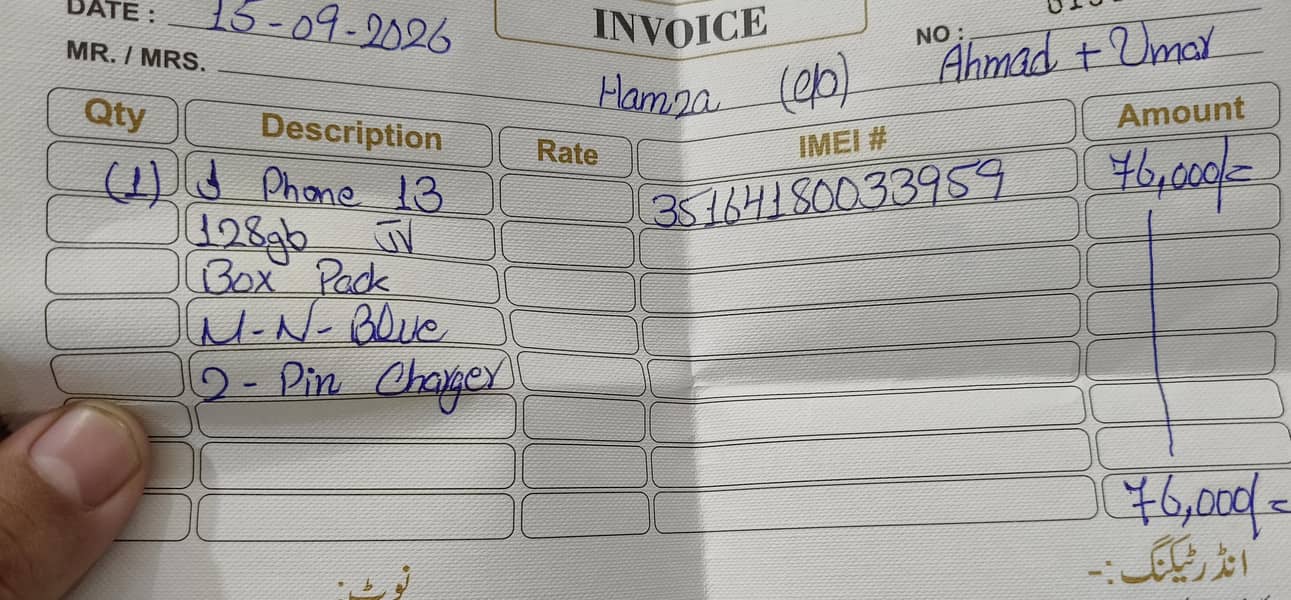 DATE : 15-09-2026
INVOICE
NO :
MR. / MRS. Hamza (e/o) Ahmad + Umar
Qty Description Rate IMEI # Amount
(1) I Phone 13 35164180033959 76,000/=
128gb JV
Box Pack
M-N-Blue
2-Pin Charger
76,000/=
انڈرٹیکنگ :-
نوٹ: